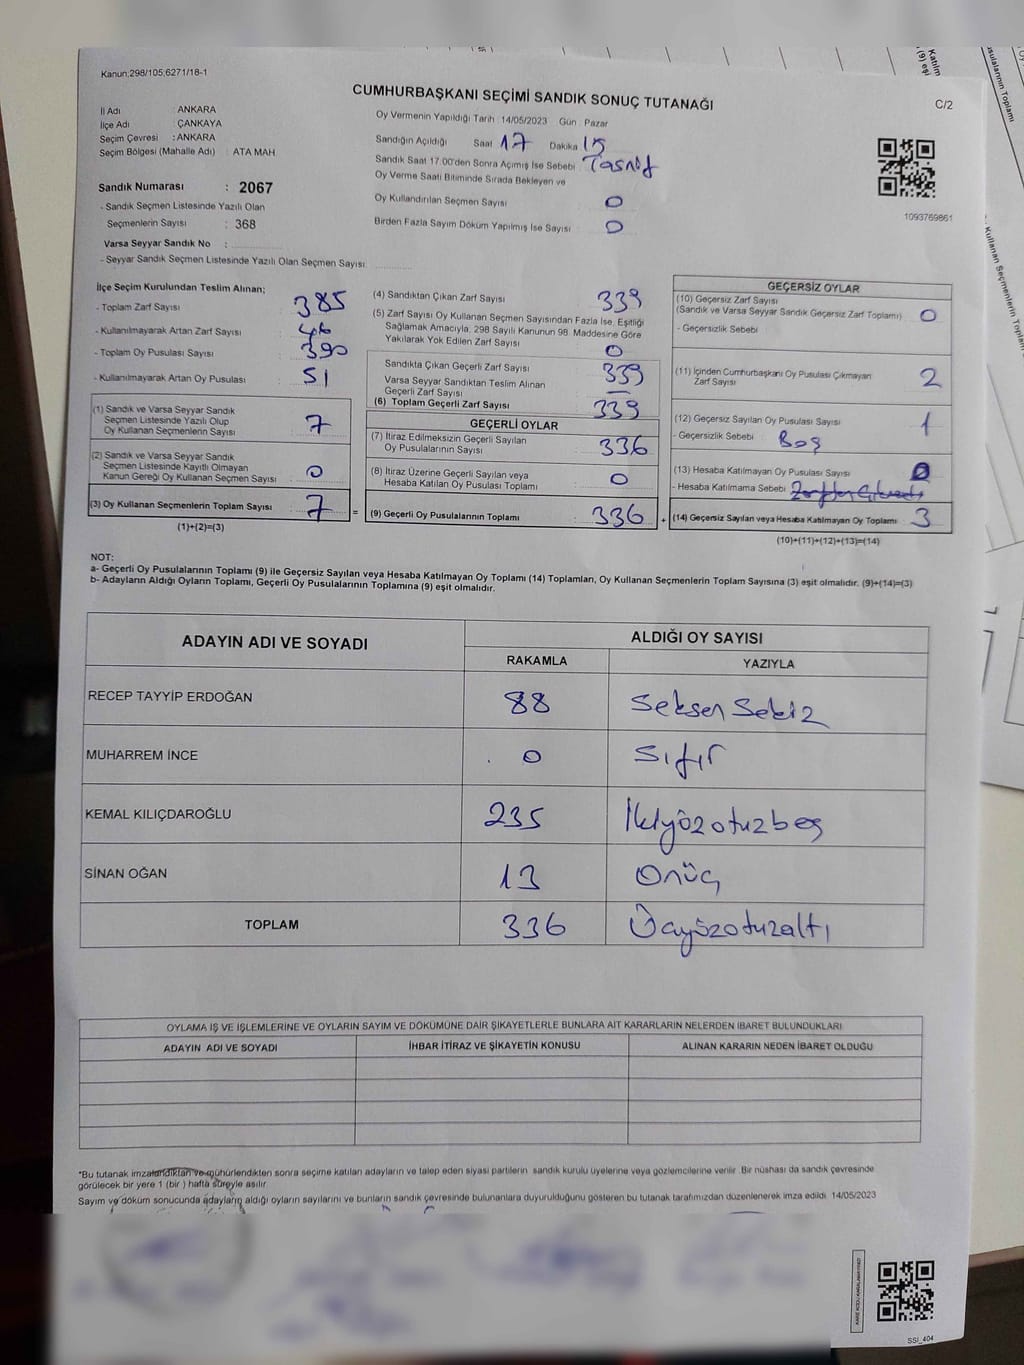 Kanun;298/105;6271/18-1
CUMHURBAŞKANI SEÇİMİ SANDIK SONUÇ TUTANAĞI
C/2
İl Adı : ANKARA
İlçe Adı : ÇANKAYA
Seçim Çevresi : ANKARA
Seçim Bölgesi (Mahalle Adı) : ATA MAH
Sandık Numarası : 2067
- Sandık Seçmen Listesinde Yazılı Olan
Seçmenlerin Sayısı : 368
Varsa Seyyar Sandık No :
- Seyyar Sandık Seçmen Listesinde Yazılı Olan Seçmen Sayısı:
Oy Vermenin Yapıldığı Tarih 14/05/2023 Gün Pazar
Sandığın Açıldığı Saat 17 Dakika 15
Sandık Saat 17.00'den Sonra Açımış İse Sebebi Tasnif
Oy Verme Saati Bitiminde Sırada Bekleyen ve
Oy Kullandırılan Seçmen Sayısı : 0
Birden Fazla Sayım Döküm Yapılmış İse Sayısı : 0
1093769861
İlçe Seçim Kurulundan Teslim Alınan;
- Toplam Zarf Sayısı : 385
- Kullanılmayarak Artan Zarf Sayısı : 46
- Toplam Oy Pusulası Sayısı : 390
- Kullanılmayarak Artan Oy Pusulası : 51
(1) Sandık ve Varsa Seyyar Sandık
Seçmen Listesinde Yazılı Olup
Oy Kullanan Seçmenlerin Sayısı : 7
(2) Sandık ve Varsa Seyyar Sandık
Seçmen Listesinde Kayıtlı Olmayan
Kanun Gereği Oy Kullanan Seçmen Sayısı : 0
(3) Oy Kullanan Seçmenlerin Toplam Sayısı : 7
(1)+(2)=(3)
(4) Sandıktan Çıkan Zarf Sayısı : 339
(5) Zarf Sayısı Oy Kullanan Seçmen Sayısından Fazla İse, Eşitliği
Sağlamak Amacıyla, 298 Sayılı Kanunun 98. Maddesine Göre
Yakılarak Yok Edilen Zarf Sayısı : 0
Sandıkta Çıkan Geçerli Zarf Sayısı : 339
Varsa Seyyar Sandıktan Teslim Alınan
Geçerli Zarf Sayısı : —
(6) Toplam Geçerli Zarf Sayısı : 339
GEÇERLİ OYLAR
(7) İtiraz Edilmeksizin Geçerli Sayılan
Oy Pusulalarının Sayısı : 336
(8) İtiraz Üzerine Geçerli Sayılan veya
Hesaba Katılan Oy Pusulası Toplamı : 0
= (9) Geçerli Oy Pusulalarının Toplamı : 336 +
GEÇERSİZ OYLAR
(10) Geçersiz Zarf Sayısı
(Sandık ve Varsa Seyyar Sandık Geçersiz Zarf Toplamı) : 0
- Geçersizlik Sebebi :
(11) İçinden Cumhurbaşkanı Oy Pusulası Çıkmayan
Zarf Sayısı : 2
(12) Geçersiz Sayılan Oy Pusulası Sayısı : 1
- Geçersizlik Sebebi : Boş
(13) Hesaba Katılmayan Oy Pusulası Sayısı : 0
- Hesaba Katılmama Sebebi
(14) Geçersiz Sayılan veya Hesaba Katılmayan Oy Toplamı : 3
(10)+(11)+(12)+(13)=(14)
NOT:
a- Geçerli Oy Pusulalarının Toplamı (9) ile Geçersiz Sayılan veya Hesaba Katılmayan Oy Toplamı (14) Toplamları, Oy Kullanan Seçmenlerin Toplam Sayısına (3) eşit olmalıdır. (9)+(14)=(3)
b- Adayların Aldığı Oyların Toplamı, Geçerli Oy Pusulalarının Toplamına (9) eşit olmalıdır.
ADAYIN ADI VE SOYADI
ALDIĞI OY SAYISI
RAKAMLA YAZIYLA
RECEP TAYYİP ERDOĞAN 88 Seksen Sekiz
MUHARREM İNCE 0 Sıfır
KEMAL KILIÇDAROĞLU 235 İkiyüzotuzbeş
SİNAN OĞAN 13 Onüç
TOPLAM 336 Üçyüzotuzaltı
OYLAMA İŞ VE İŞLEMLERİNE VE OYLARIN SAYIM VE DÖKÜMÜNE DAİR ŞİKAYETLERLE BUNLARA AİT KARARLARIN NELERDEN İBARET BULUNDUKLARI
ADAYIN ADI VE SOYADI İHBAR İTİRAZ VE ŞİKAYETİN KONUSU ALINAN KARARIN NEDEN İBARET OLDUĞU
*Bu tutanak imzalandıktan ve mühürlendikten sonra seçime katılan adayların ve talep eden siyasi partilerin sandık kurulu üyelerine veya gözlemcilerine verilir .Bir nüshası da sandık çevresinde
görülecek bir yere 1 (bir ) hafta süreyle asılır
Sayım ve döküm sonucunda adayların aldığı oyların sayılarını ve bunların sandık çevresinde bulunanlara duyurulduğunu gösteren bu tutanak tarafımızdan düzenlenerek imza edildi 14/05/2023
SSİ_404